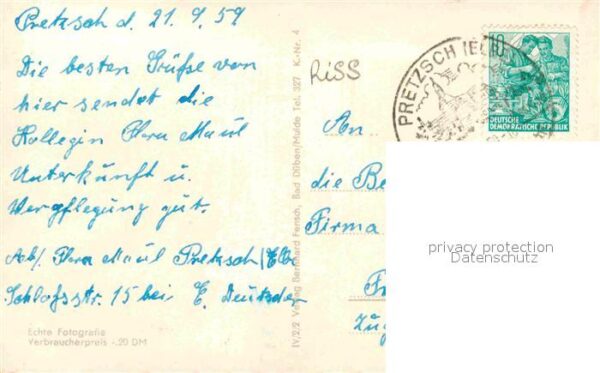 Pretzsch d. 21.9.59
Die besten Grüße von
hier sendet die
Kollegin Flora Maul
Unterkunft u.
Verpflegung gut.
Abs/ Flora Maul Pretzsch/Elbe
Schloßstr. 15 bei E. Deutscher
Echte Fotografie
Verbraucherpreis -.20 DM
IV/2/2 Verlag Bernhard Fensch, Bad Düben/Mulde Tel. 327 K-Nr. 4
RiSS
An
die Be
Firma
Fr
Zug
PRETZSCH (EL
10
DEUTSCHE
DEMOKRATISCHE REPUBLIK
privacy protection
Datenschutz